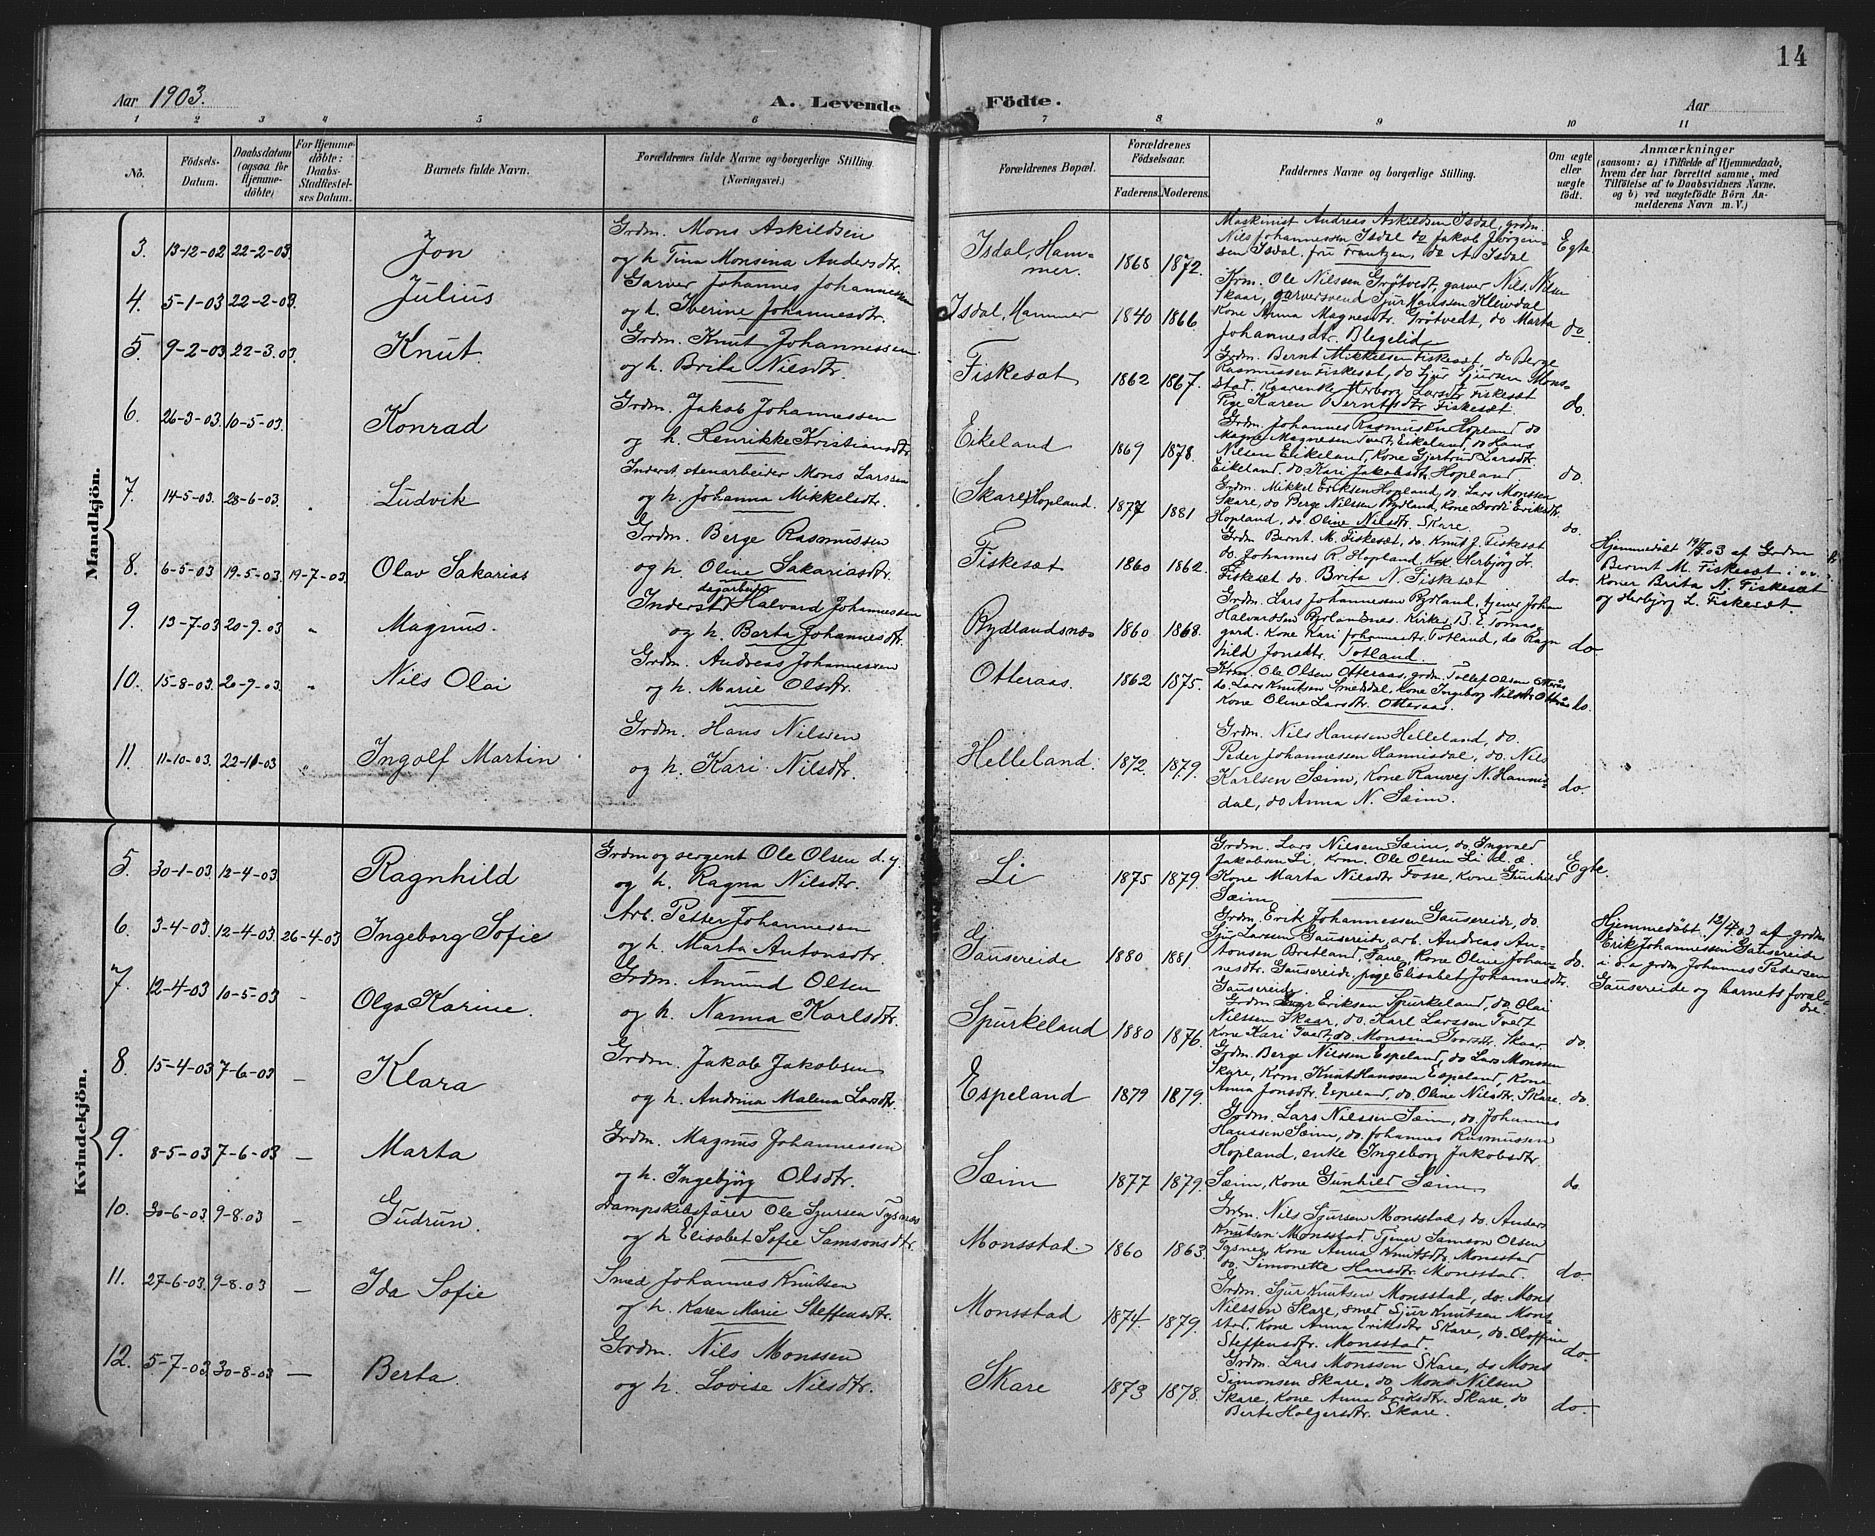 14
Aar 1903.
A. Levende Födte.
Aar
1 2 3 4 5 6 7 8 9 10 11
No.
Födsels-Datum.
Daabsdatum (ogsaa for Hjemme-döbte)
For Hjemme-döbte: Daabs-Stadfæstel-ses Datum.
Barnets fulde Navn.
Forældrenes fulde Navne og borgerlige Stilling.
(Næringsvei.)
Forældrenes Bopæl.
Forældrenes Födselsaar.
Faderens. Moderens.
Faddernes Navne og borgerlige Stilling.
Om ægte eller uægte födt.
Anmærkninger
(saasom: a) i Tilfælde af Hjemmedaab,
hvem der har forrettet samme, med
Tilföielse af to Daabsvidners Navne.
og b) ved uægtefödte Börn An-
melderens Navn m. V.)
Mandkjön.
3. 13-12-02 22-2-03 Jon
Grdm. Mons Askildsen
og h. Tina Monsina Andersdtr.
Isdal, Ham-
mer. 1868 1872.
Maskinist Andreas Askildsen Isdal, grdm.
Nils Johannessen Isdal do Jakob Jörgen-
sen Isdal, fru Frantzen, do A. Isdal
Egte
4. 5-1-03 22-2-03. Julius
Garver Johannes Johannessen
og h. Iverine Johannesdtr.
Isdal, Hammer 1840 1866.
Krm. Ole Nilssen Gròtvedt, garver Nils Nilsen
Skaar, garversvend Sjur Hanssen Kleivdal
Kone Anna Magnesdtr. Grötvedt, do Marta
Johannesdtr. Blegelid
do
5. 9-2-03 22-3.03. Knut.
Grdm. Knut Johannessen
og h. Brita Nilsdtr.
Fiskesæt 1862 1867.
Grdm. Bernt Mikkelsen Fiskesæt, do Berge
Rasmussen Fiskesæt, do Sjur Sjursen Mons-
stad. Kaarenke Herborg Larsdtr Fiskesæt
Pige Karen Berntsdtr Fiskesæt.
do.
6. 26-3-03. 10-5-03. Konrad
Grdm. Jakob Johannessen
og h. Henrikke Kristiansdtr.
Eikeland 1869 1878.
Grdm. Johannes Rasmussen Hopland do
Magne Magnesen Tvedt, Eikeland, do Hans
Nilsen Eikeland, Kone Gjertrud Larsdtr.
Eikeland, do Kari Jakobsdtr Hopland
do.
7. 14-5-03. 28-6-03. Ludvik
Inderst stenarbeider Mons Larssen
og h. Johanna Mikkelsdtr.
(Skare) Hopland. 1877 1881
Grdm. Mikkel Eriksen Hopland, do Lars Monssen
Skare, do Berge Nilssen Rydland, Kone Dordi Eriksdtr.
Hopland, do. Oline Nilsdtr. Skare.
do.
8. 6-5-03. 19-5-03. 19-7-03. Olav Sakarias
Grdm. Berge Rasmussen
og h. Oline Sakariasdtr.
Fiskesæt 1860 1862.
Grdm Bernt. M. Fiskesæt, do. Knut J. Fiskesæt
do. Johannes R. Hopland, Herbjörg Lr.
Fiskesæt do. Brita N. Fiskesæt
do.
Hjemmedöbt 19/5 03 af Grdm
Bernt M. Fiskesæt i o.v. i
Koner Brita N. Fiskesæt
og Herbjörg L. Fiskesæt
9. 13-7-03 20-9.03 Magnus.
dagarbeid
Inderst Halvard Johannessen
og h. Berta Johannesdtr.
Rydlandsnæs 1860. 1868.
Grdm. Lars Johannessen Rydland, tjener Johan
Halvardsen Rydlandsnes. Kirkes. B. E. Tornæs-
gard. Kone Kari Johannesdtr Totland, do Ragn
hild Jonsdtr. Totland.
do.
10. 15-8-03. 20-9-03. Nils Olai
Grdm. Andreas Johannessen
og h. Marie Olsdtr.
Otteraas. 1862 1875.
Krm. Ole Olsen Otteraas, grdm. Tollef Olsen Otterås
do. Lars Knutsen Smeddal, Kone Ingeborg Nilsdtr Otterås
Kone Oline Larsdtr. Otteraas.
do.
11. 11-10-03. 22-11-03 Ingolf Martin
Grdm. Hans Nilsen
og h. Kari Nilsdtr.
Helleland. 1872. 1879.
Grdm. Nils Hanssen Helleland, do.
Peder Johannessen Hannisdal, do. Nils
Karlsen Sæim, Kone Ranvej N. Hannis-
dal, do Anna N. Sæim.
do.
Kvindekjön.
5. 30-1-03 12-4-03 Ragnhild
Grdm og sergent Ole Olsen d. y.
og h. Ragna Nilsdtr.
Li 1875 1879.
Grdm. Lars Nilssen Sæim, do. Ingvald
Jakobsen Li, Krm. Ole Olsen Li d. æ.
Kone Marta Nilsdtr Fosse, Kone Gunhild
Sæim
Egte.
6. 3-4-03. 12-4.03. 26-4.03 Ingeborg Sofie
Arb. Petter Johannessen
og h. Marta Antonsdtr.
Gausereide 1880 1881.
Grdm. Erik Johannessen Gausereide, do.
Sjur Larsen Gausereide, arb. Andreas An-
tonsen Bratland, Fane, Kone Oline Johan-
nesdtr. Gausereide, pige Elisabet Johannesdtr.
Gausereide.
do.
Hjemmedöbt 12/4 03 af grdm
Erik Johannessen Gausereide
i o. a grdm Johannes Pedersen
Gausereide og barnets foræl-
dre.
7. 12-4-03 10-5-03 Olga Karine.
Grdm. Amund Olsen
og h. Nanna Karlsdtr.
Spurkeland 1880 1876.
Grdm Eriksen Spurkeland, do Olai
Nilssen Skaar, do. Karl Larssen Tvedt
Kone Kari Tvedt, do. Monsina Ivarsdtr. Skaar
do.
8. 15-4-03 7-6-03 Klara
Grdm. Jakob Jakobsen
og h. Andrina Malena Larsdtr.
Espeland 1879 1879.
Grdm. Berge Nilssen Espeland, do Lars Monssen
Skare, Krm. Knut Hanssen Espeland, Kone
Anna Jonsdtr. Espeland, do. Oline Nilsdtr. Skare.
do.
9. 8-5-03 7-6-03 Marta
Grdm. Magnus Johannessen
og h. Ingebjörg Olsdtr.
Sæim 1877 1879.
Grdm. Lars Nilssen Sæim, do, Johannes
Hanssen Sæim, do. Johannes Rasmussen
Hopland, enke Ingeborg Jakobsdtr.
Sæim, Kone Gunhild Sæim.
do.
10. 20-6-03. 9-8.03 Gudrun.
Dampskibsförer Ole Sjursen Tysnæs
og h Elisabet Sofie Samsonsdtr.
Monsstad. 1860 1863.
Grdm. Nils Sjursen Monsstad, do. Anders
Knutsen Monsstad. Tjener Samson Olsen
Tysnes, Kone Anna Knutsdtr. Monsstad
do. Simonette Hansdtr Monsstad.
do.
11. 27-6-03. 9-8.03 Ida Sofie
Smed Johannes Knutsen
og h. Karen Marie Steffensdtr.
Monsstad 1874 1879.
Grdm. Sjur Knutsen Monsstad, do. Mons
Nilssen Skare, smed Sjur Knutsen Mons-
stad. Kone Anna Eriksdtr Skare, do. Oloffine
Steffensdtr. Monsstad.
do.
12. 5-7-03. 30-8-03 Berta.
Grdm. Nils Monssen
og h. Lovise Nilsdtr.
Skare 1873 1878.
Grdm. Lars Monssen Skare, do Mons
Simonsen Skare, do Mons Nilsen
Skare, Kone Anna Eriksdtr. Skare, do
Berta Holgersdtr. Skare.
do.